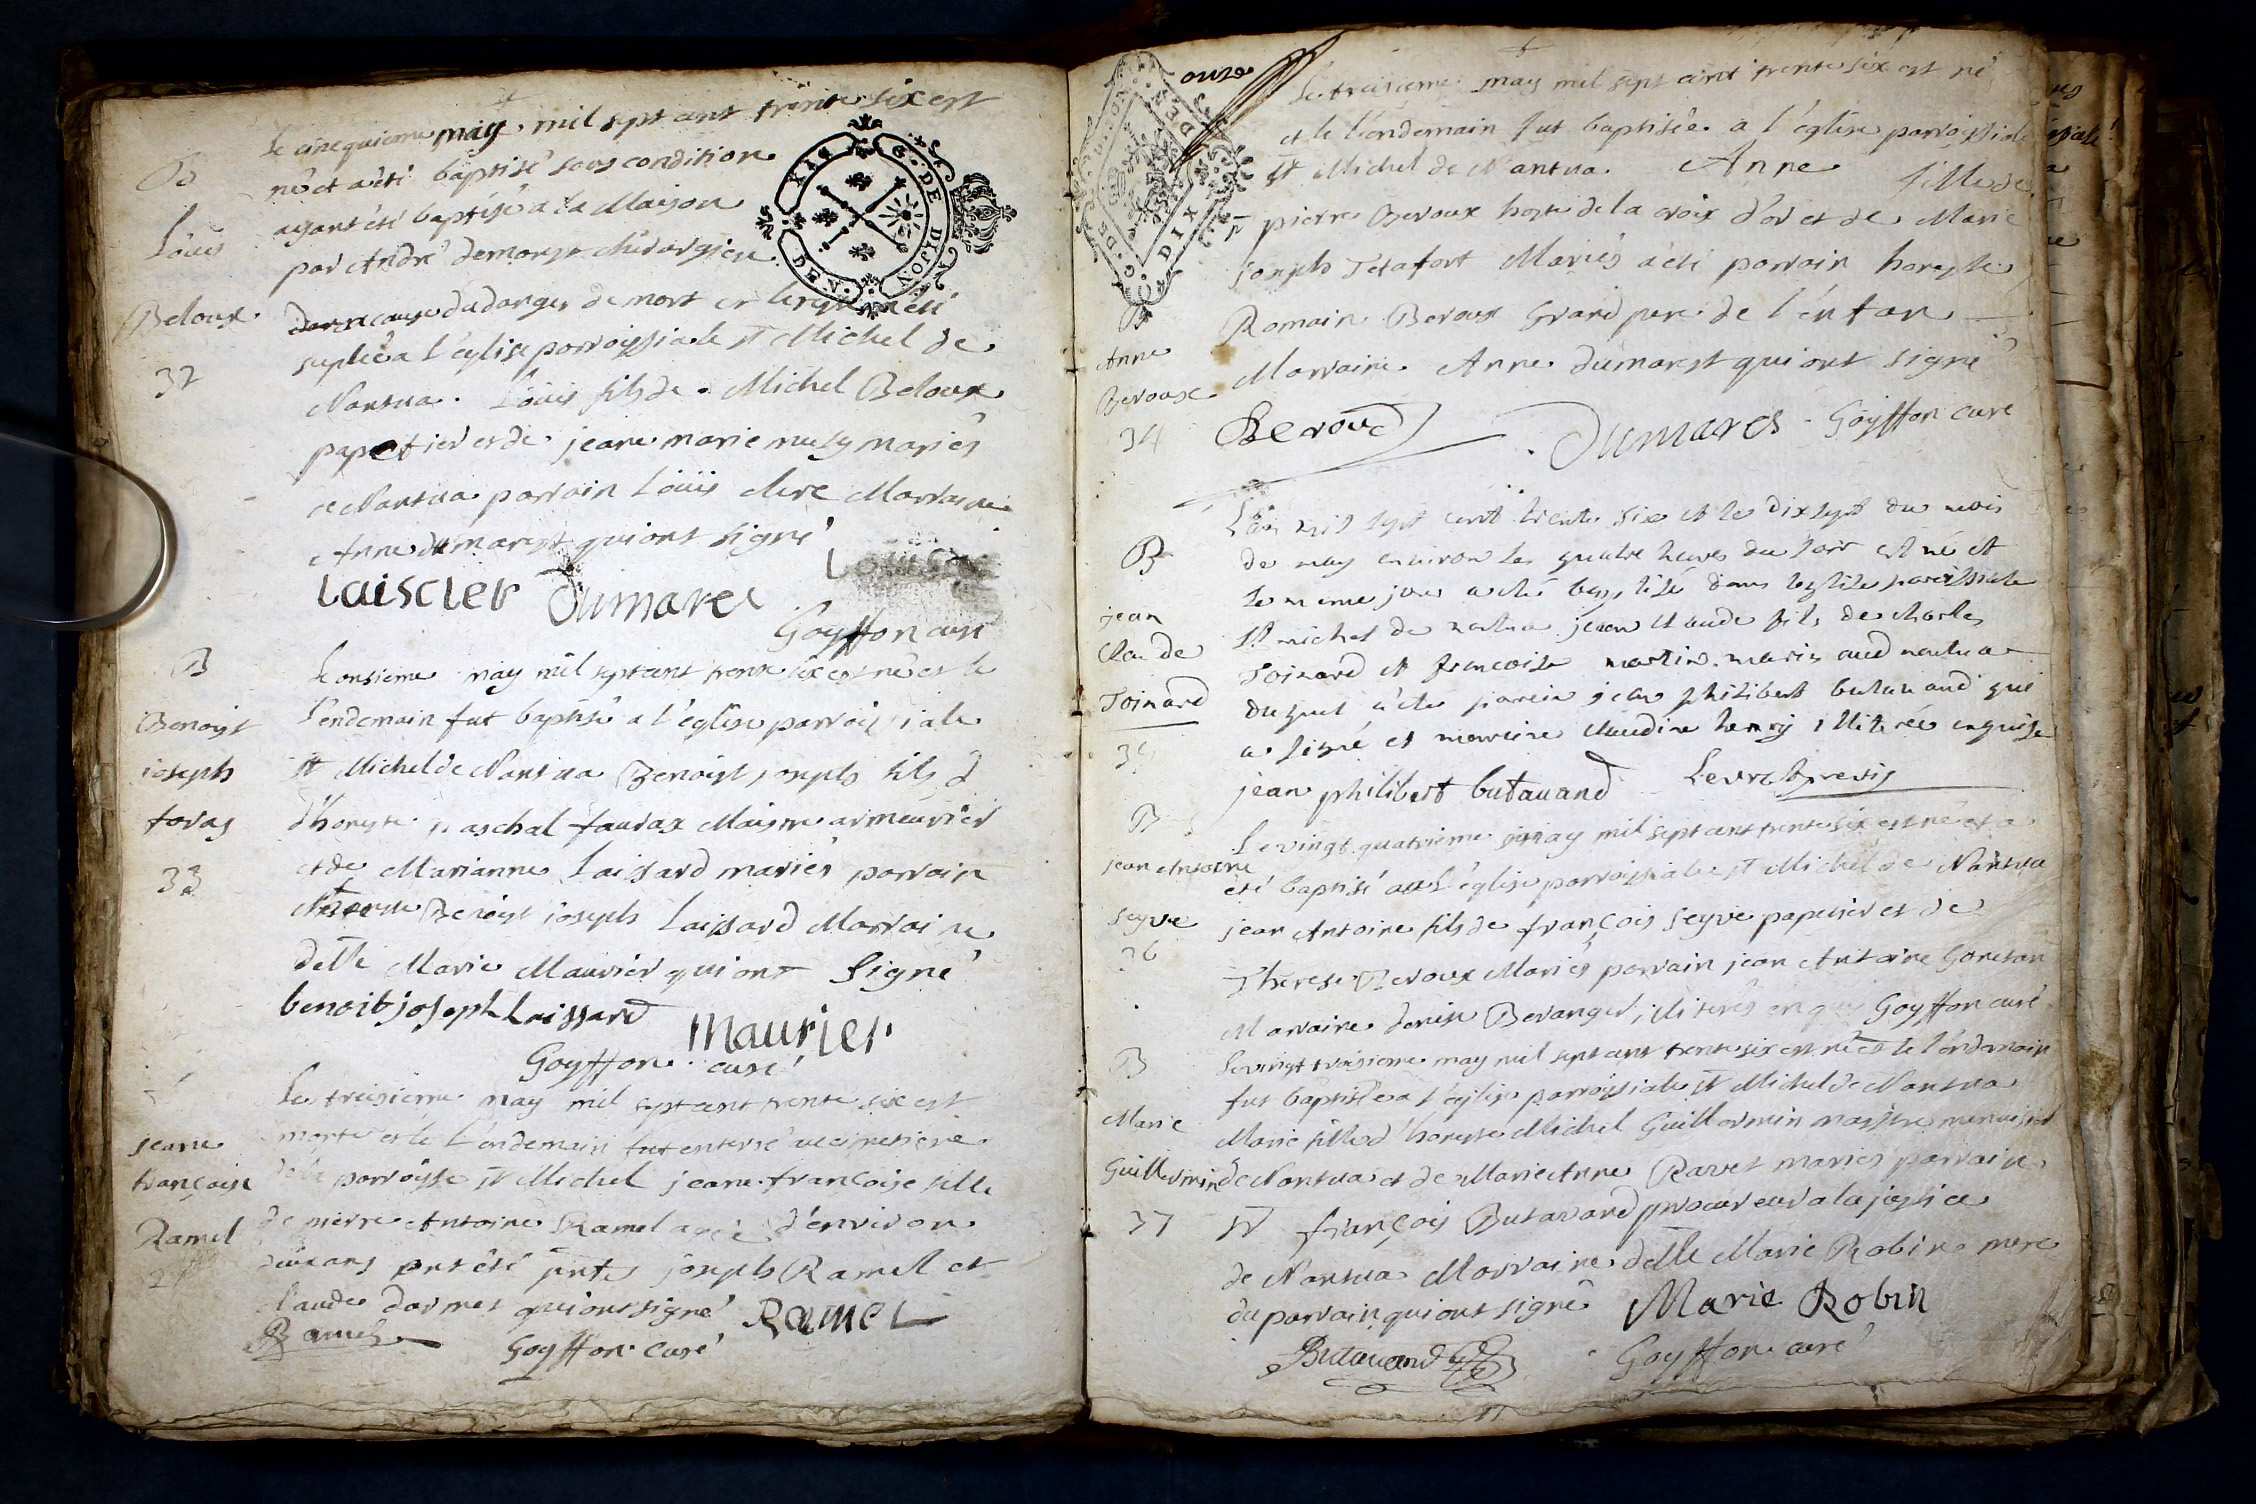 B
Loüis
Beloux
32
Le cinequieme may mil sept cent trente six est
né et a eté baptisé sous condition
ayant été baptisé a la Maison
par André demarest chirurgien
a cause du danger de mort et le reste a eté
suplée a l'église parroissiale St Michel de
Nantua. Loüis fils de Michel Beloux
papetier et de jeane marie mariés
de Nantua parrain Loüis clerc Marraine
Anne dumarest qui ont signé
Laiscler Dumarest
Goyffon curé
GE. DE DIJON
DIX DEN.
B
Benoist
joseph
foras
33
Le onsieme may mil sept cent trente six est né et le
l'endemain fut baptisé a l'église parroissiale
St Michel de Nantua Benoist joseph fils d
d'honeste paschal fauras Maistre armeurier
et de Marianne Laissard mariés parrain
Benoist joseph Laissard Marraine
delle Marie Maurier qui ont signé
benoit joseph Laissard Maurier
Goyffon curé
jeane
françoise
Ramel
Le treisieme may mil sept cent trente six est
morte et le l'endemain fut enterré au cimetiere
de la parroisse St Michel jeane françoise fille
de pierre Antoine Ramel agée d'environ
deux ans ont été pnts joseph Ramel et
Claude darmet qui ont signé Ramel
Ramel Goyffon curé
onze
DE DIX
B
Anne
Beroux
34
Le treisieme may mil sept cent trente six est né
et le l'endemain fut baptisée a l'église parroissiale
St Michel de Nantua Anne fille de
pierre Beroux hoste de la croix d'or et de Marie
joseph Tetafort Mariés a eté parrain honeste
Romain Beroux Grand pere de l'enfan
Marraine Anne dumarest qui ont signé
Beroud Dumarest Goyffon curé
B
jean
Claude
Toinard
35
L'an mil sept cent trente six et le dix sept du mois
de may environ les quatre heures du soir est né et
le meme jour a eté baptisé dans leglise parroissiale
St michel de nantua jean claude fils de charles
Toinard et francoise martin mariés aud nantua
duquel a été parrein jean philibert butavand qui
a signé et marreine claudine henry illiterée enquise
jean philibert butavand
B
jean Antoine
Seyve
36
Le vingt quatrieme may mil sept cent trente six est né et a
été baptisé a l'église parroissiale St Michel de Nantua
jean Antoine fils de françois Seyve papetier et de
Therese Beroux Mariés parrain jean Antoine
Marraine denise Beranger, illiterés enquis Goyffon curé
B
Marie
Guillermin
37
Le vingt troisieme may mil sept cent trente six est née et le l'endemain
fut baptisée a l'église parroissiale St Michel de Nantua
Marie fille d'honeste Michel Guillermin maistre menuisier
de Nantua et de Marie Anne Ravet mariés parrain
Sr françois Butavand procureur a la justice
de Nantua Marraine delle Marie Robin mere
du parrain qui ont signé Marie Robin
Butavand Goyffon curé